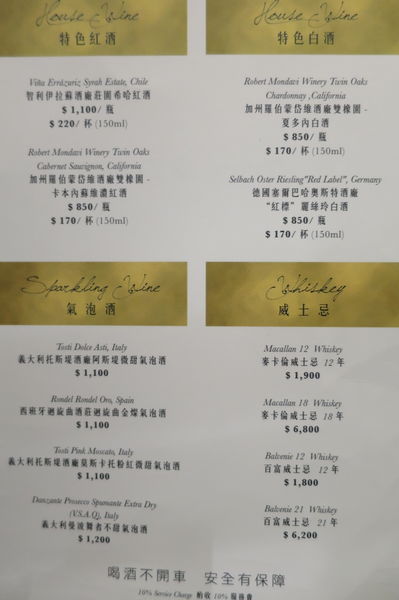 House Wine
特色紅酒
Viña Errázuriz Syrah Estate, Chile
智利伊拉蘇酒廠莊園希哈紅酒
$ 1,100/ 瓶
$ 220/ 杯 (150ml)
Robert Mondavi Winery Twin Oaks
Cabernet Sauvignon, California
加州羅伯蒙岱維酒廠雙橡園 -
卡本內蘇維濃紅酒
$ 850/ 瓶
$ 170/ 杯 (150ml)
House Wine
特色白酒
Robert Mondavi Winery Twin Oaks
Chardonnay ,California
加州羅伯蒙岱維酒廠雙橡園 -
夏多內白酒
$ 850/ 瓶
$ 170/ 杯 (150ml)
Selbach Oster Riesling"Red Label", Germany
德國塞爾巴哈奧斯特酒廠
“紅標” 麗絲玲白酒
$ 850/ 瓶
$ 170/ 杯 (150ml)
Sparkling Wine
氣泡酒
Tosti Dolce Asti, Italy
義大利托斯堤酒廠阿斯堤微甜氣泡酒
$ 1,100
Rondel Rondel Oro, Spain
西班牙迴旋曲酒莊迴旋曲金燦氣泡酒
$ 1,100
Tosti Pink Moscato, Italy
義大利托斯堤酒廠莫斯卡托粉紅微甜氣泡酒
$ 1,100
Danzante Prosecco Spumante Extra Dry
(V.S.A.Q), Italy
義大利曼波舞者不甜氣泡酒
$ 1,200
Whiskey
威士忌
Macallan 12 Whiskey
麥卡倫威士忌 12 年
$ 1,900
Macallan 18 Whiskey
麥卡倫威士忌 18 年
$ 6,800
Balvenie 12 Whiskey
百富威士忌 12 年
$ 1,800
Balvenie 21 Whiskey
百富威士忌 21 年
$ 6,200
喝酒不開車 安全有保障
10% Service Charge 酌收 10% 服務費